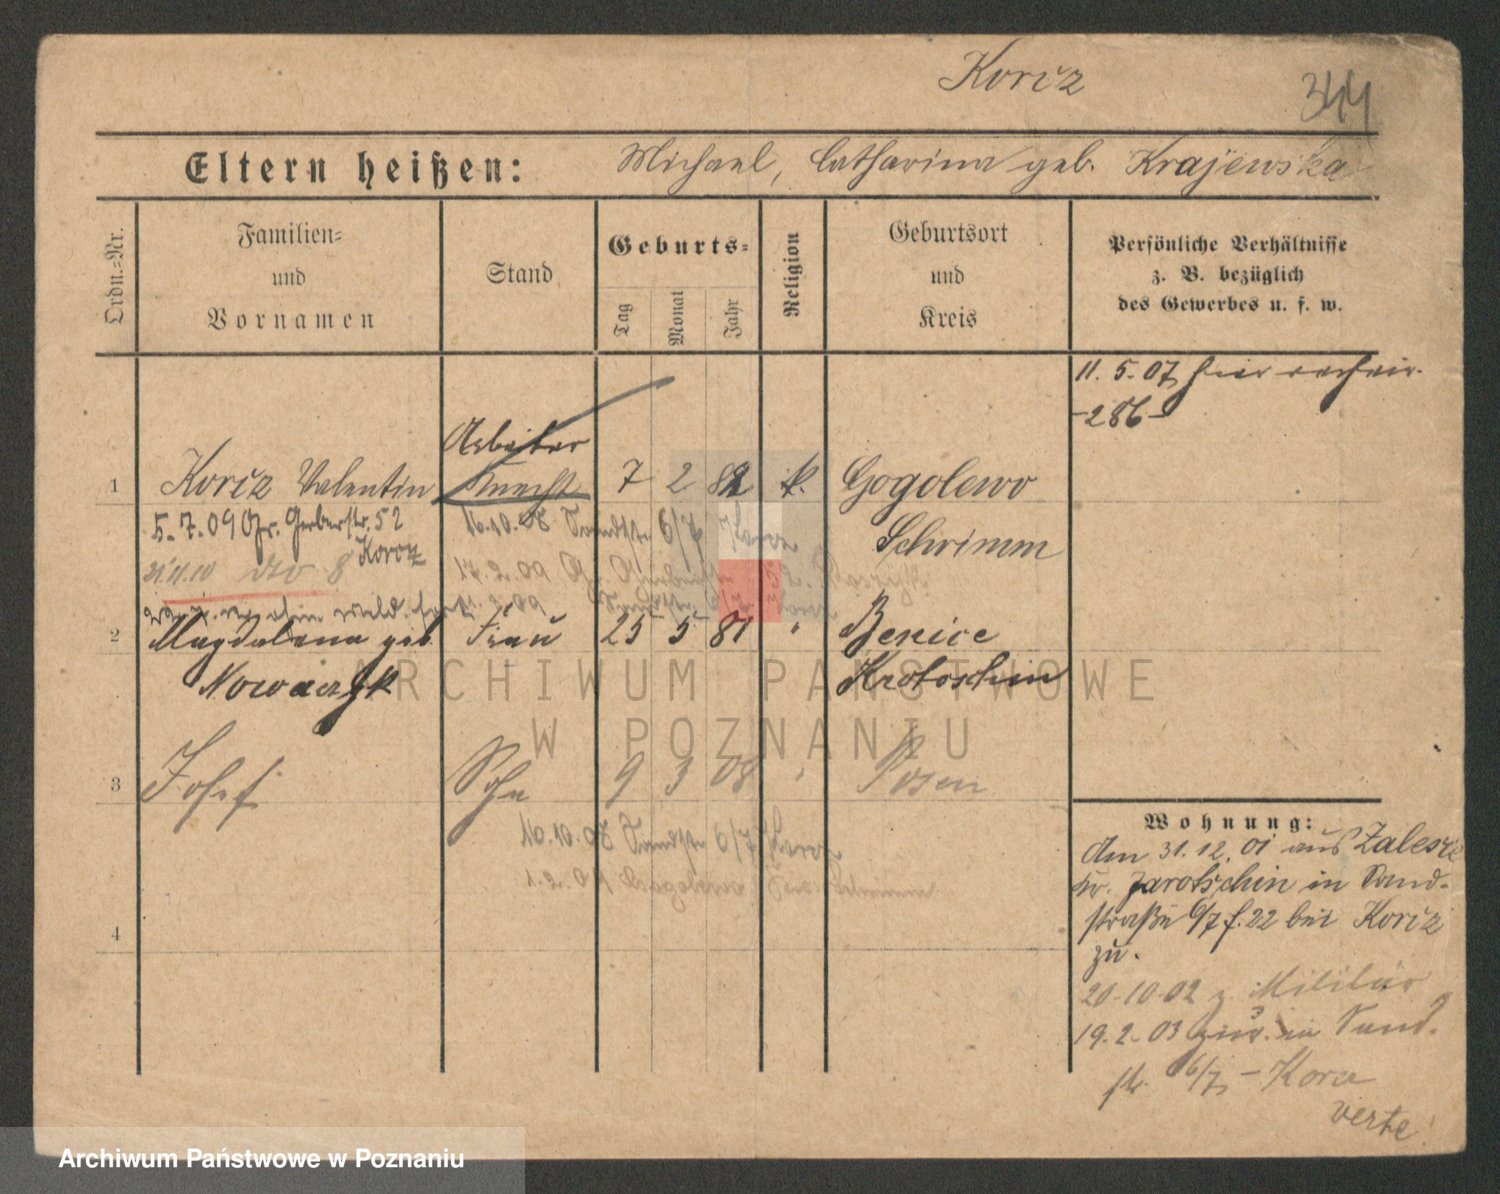 Koricz
344
Eltern heißen: Michael, Catharina geb. Krajewska
Ordn.-Nr.
Familien-
und
Vornamen
Stand
Geburts-
Tag
Monat
Jahr
Religion
Geburtsort
und
Kreis
Persönliche Verhältnisse
z. B. bezüglich
des Gewerbes u. s. w.
11. 5. 07 hier
-286-
Arbeiter
1 Koricz Valentin Knecht 7 2 82 k. Gogolewo
Schrimm
5.7.09 Gr. Gerberstr. 52
Koroz
16.10.08 Sandstr. 6/7
21.11.10 dto 8
17.2.09 Gr.
2 Magdalena geb. Frau 25 5 81 " Benice
Nowaczyk Krotoschin
3 Josef Sohn 9 3 08 " Posen
16.10.08 Sandstr 6/7
1.2.09
4
Wohnung:
Am 31.12.01 aus Zalesie
Kr. Jarotschin in Sand-
straße 6/7 f. 22 bei Koricz
zu.
20-10-02 z. Militär
19.2.03 zur. in Sand-
str. 6/7 - Kora
verte!
ARCHIWUM PAŃSTWOWE
W POZNANIU
Archiwum Państwowe w Poznaniu